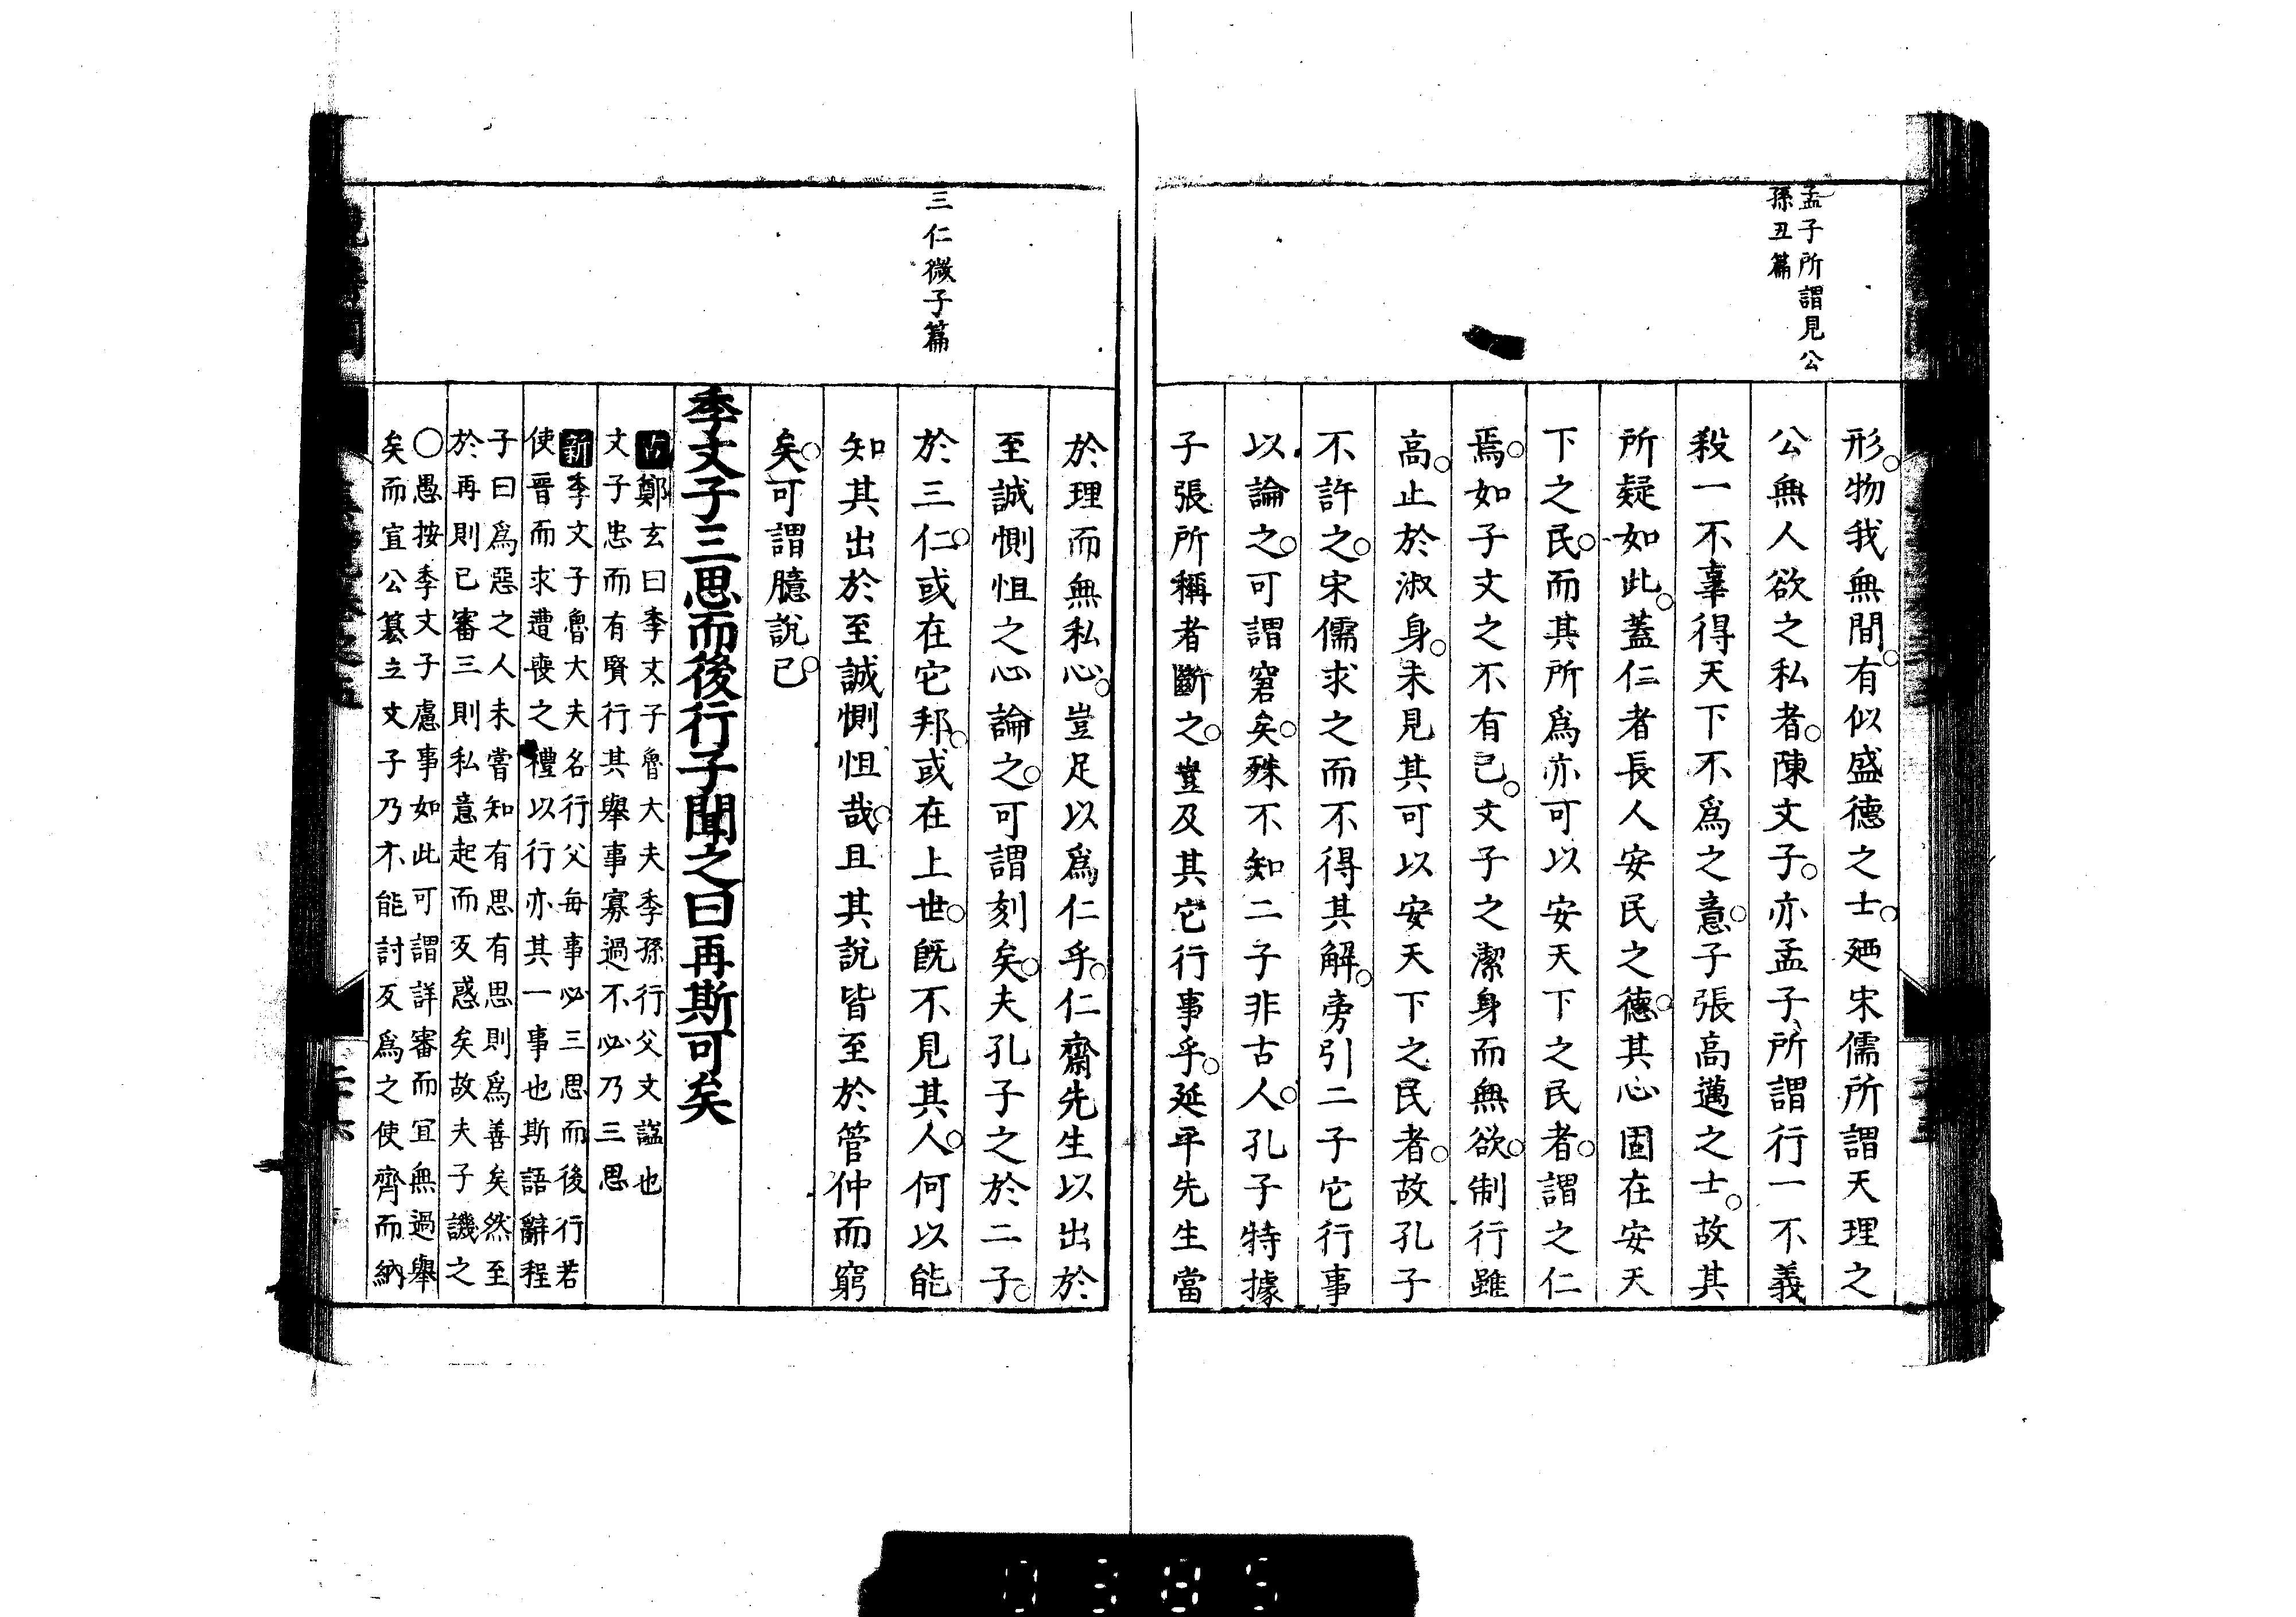 孟子所謂見公
孫丑篇
形物我無間有似盛德之士廼宋儒所謂天理之
公無人欲之私者陳文子亦孟子所謂行一不義
殺一不辜得天下不爲之意子張高邁之士故其
所疑如此蓋仁者長人安民之德其心固在安天
下之民而其所爲亦可以安天下之民者謂之仁
焉如子文之不有己文子之潔身而無欲制行雖
高止於淑身未見其可以安天下之民者故孔子
不許之宋儒求之而不得其解旁引二子它行事
以論之可謂窘矣殊不知二子非古人孔子特據
子張所稱者斷之豈及其它行事乎延平先生當
三仁微子篇
於理而無私心豈足以爲仁乎仁齋先生以出於
至誠惻怛之心論之可謂刻矣夫孔子之於二子
於三仁或在它邦或在上世既不見其人何以能
知其出於至誠惻怛哉且其說皆至於管仲而窮
矣可謂臆說已
季文子三思而後行子聞之曰再斯可矣
古鄭玄曰季文子魯大夫季孫行父文諡也
文子忠而有賢行其舉事寡過不必乃三思
新季文子魯大夫名行父每事必三思而後行若
使晉而求遭喪之禮以行亦其一事也斯語辭程
子曰爲惡之人未嘗知有思有思則爲善矣然至
於再則已審三則私意起而反惑矣故夫子譏之
○愚按季文子慮事如此可謂詳審而宜無過舉
矣而宣公篡立文子乃不能討反爲之使齊而納
0385